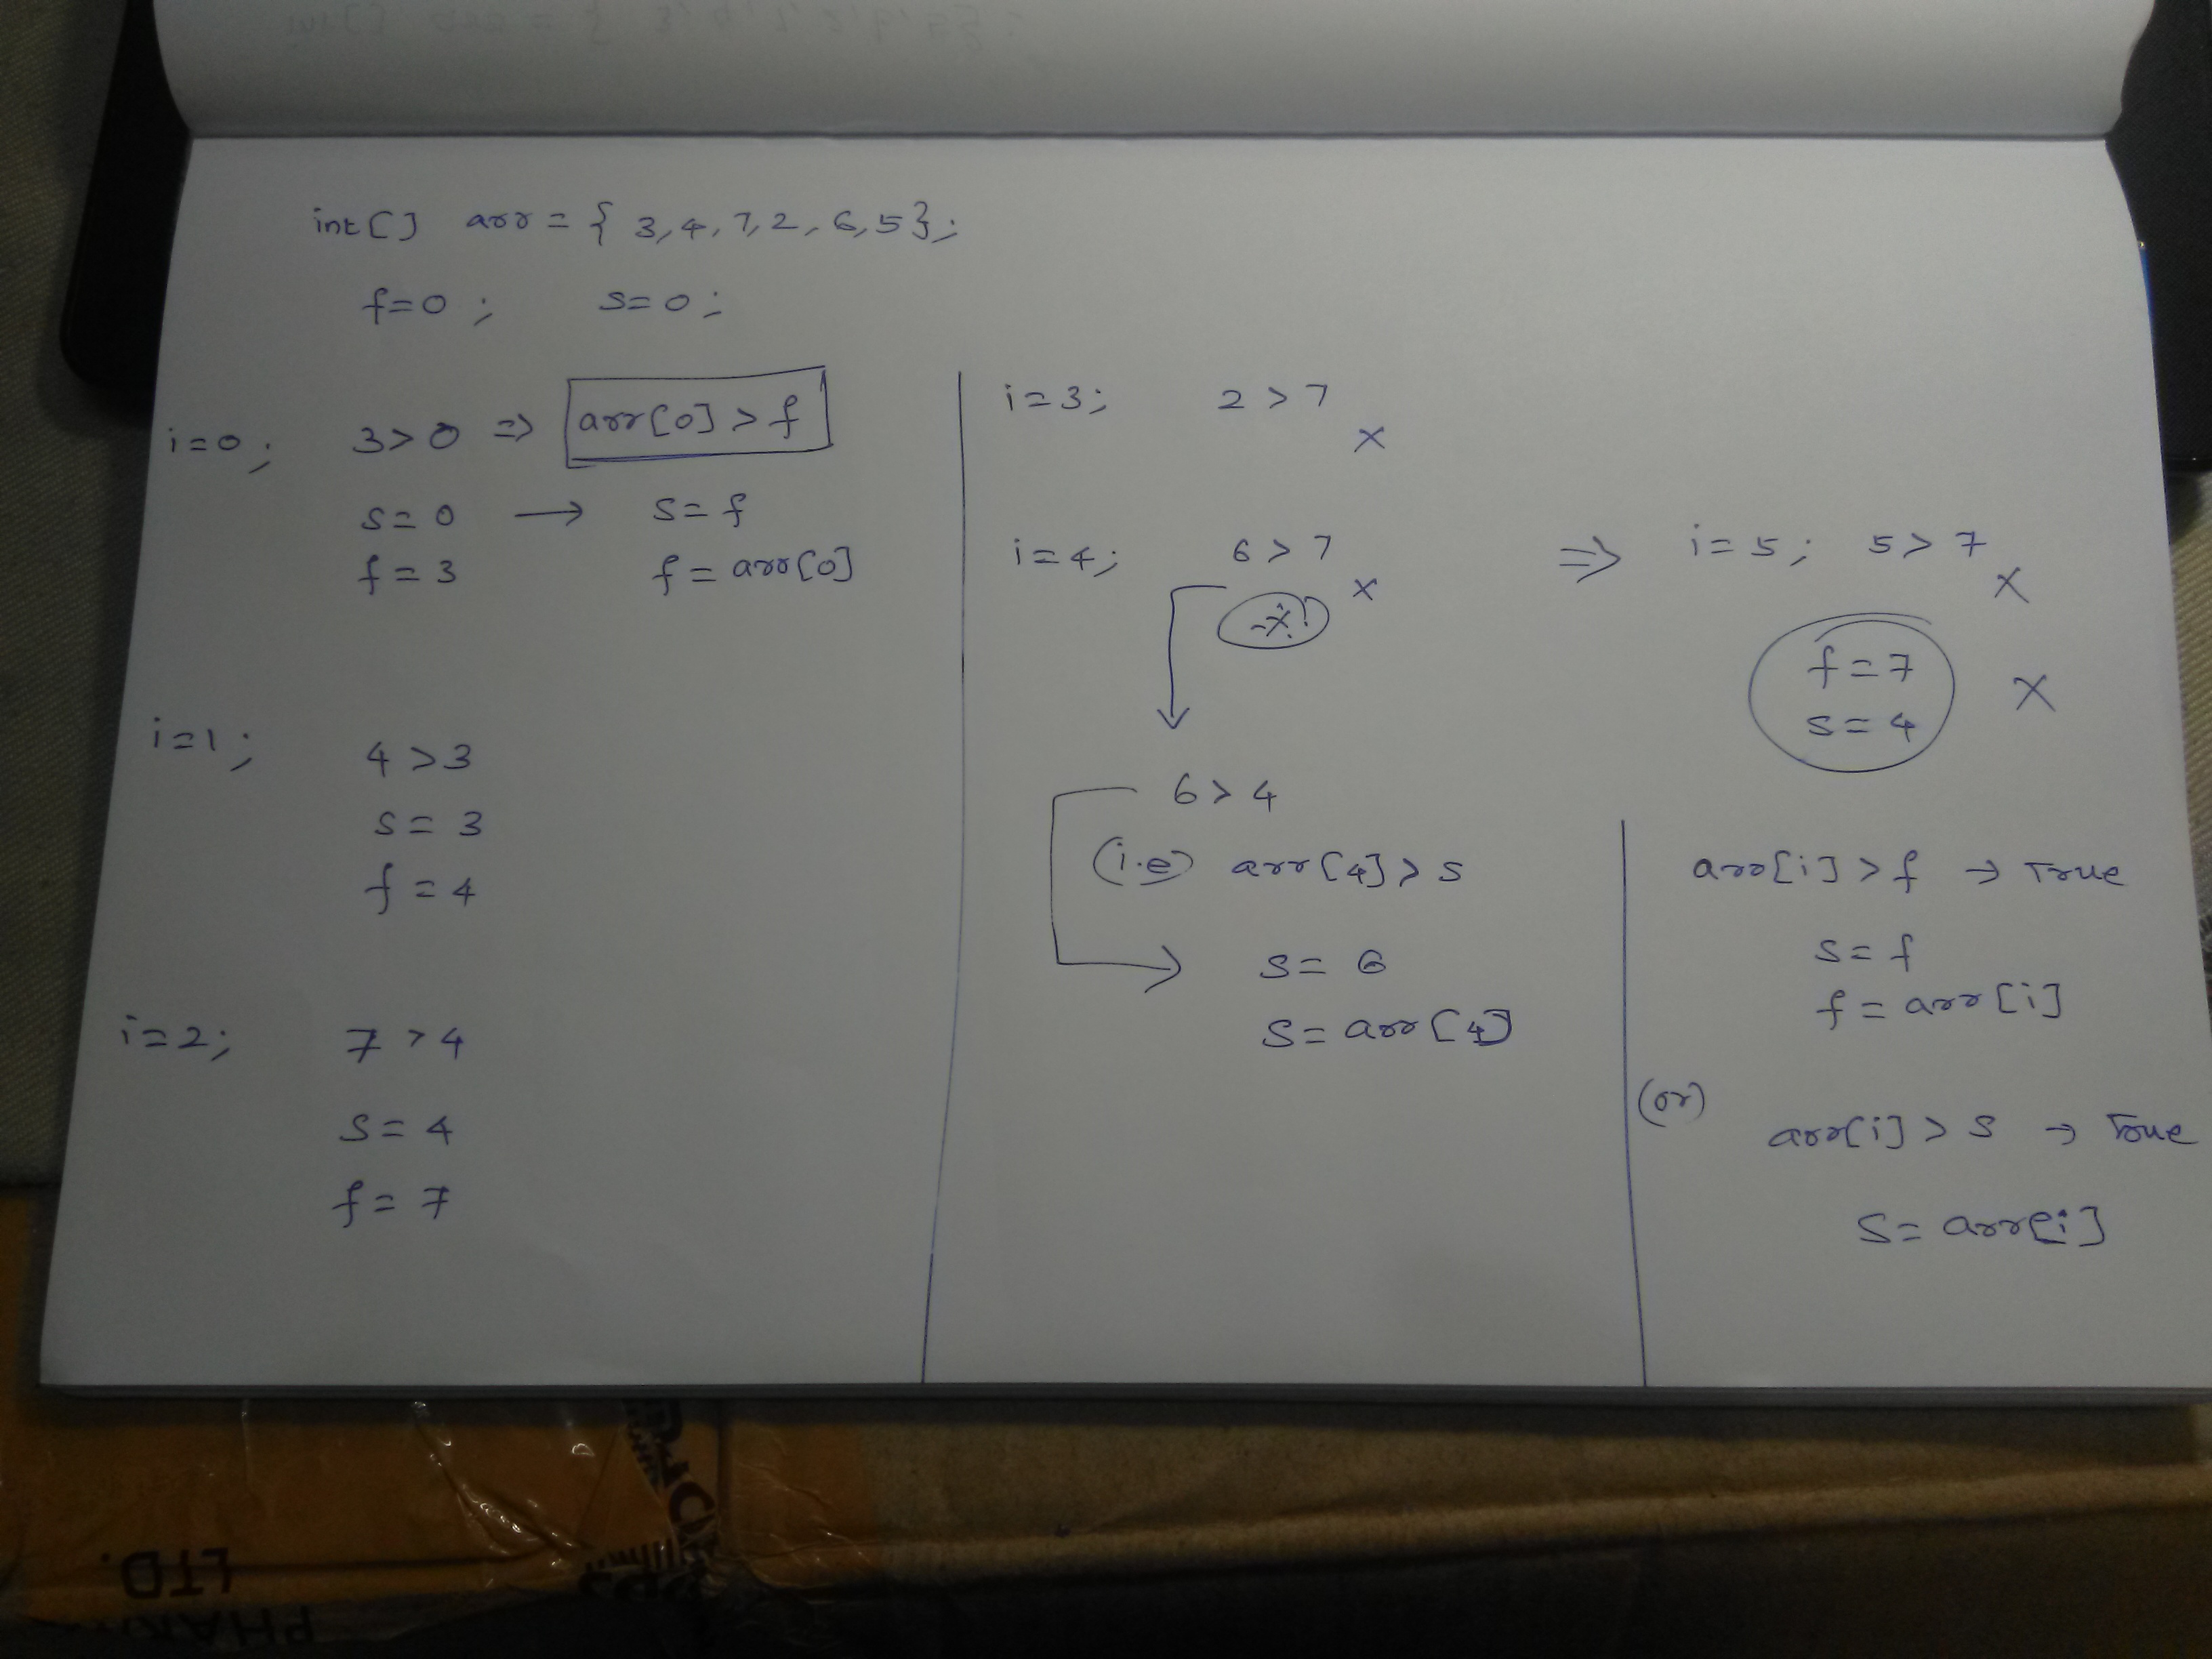 int[] arr = { 3,4,7,2,6,5};
f=0; s=0;
i=0; 3>0 => arr[0] > f
s=0 → s=f
f=3 f=arr[0]
i=1; 4>3
s=3
f=4
i=2; 7>4
s=4
f=7
i=3; 2>7
x
i=4; 6>7
x
6>4
(i.e) arr[4]>s
s=6
s=arr[4]
=> i=5; 5>7
x
f=7
s=4
x
arr[i]>f → True
s=f
f=arr[i]
(or)
arr[i]>s → True
s=arr[i]
LTD.